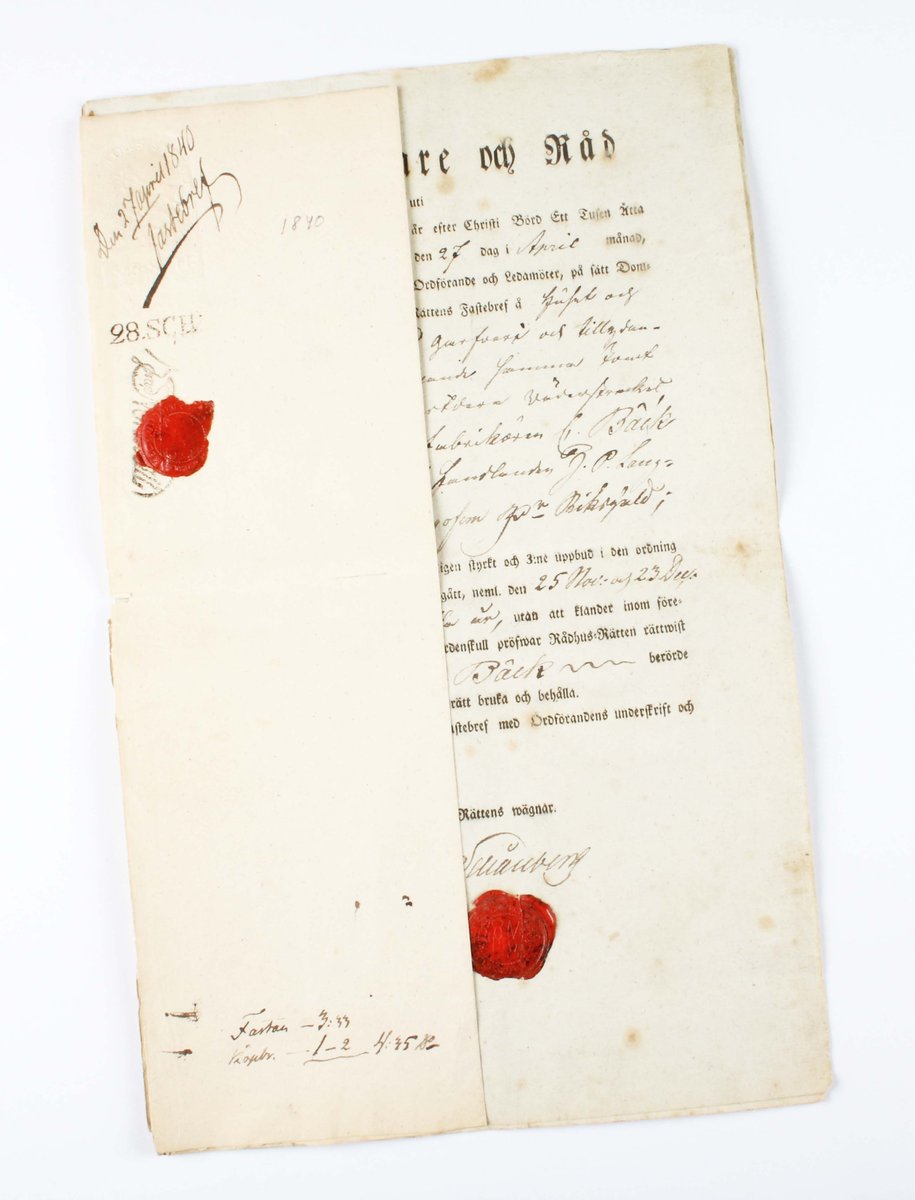 Den 27 April 1840
Fastebref
1840
28. SCH
are och Råd
uti
år efter Christi Börd Ett Tusen Åtta
den 27 dag i April månad,
Ordförande och Ledamöter, på sätt Dom-
Rättens Fastebref å Huset och
Garfveri och tillydan-
samma Tomt
Väderstrecket
Fabrikören C. Bäck
Handlanden P. P.
Riksgäld;
igen styrkt och 3:ne uppbud i den ordning
gått, neml. den 25 Nov. och 23 Dec.
år, utan att klander inom före-
rdenskull pröfwar Rådhus-Rätten rättwist
Bäck berörde
rätt bruka och behålla.
astebref med Ordförandens underskrift och
Rättens wägnar.
Fastan – 3:33
Köpbr. – 1 – 2 4:35